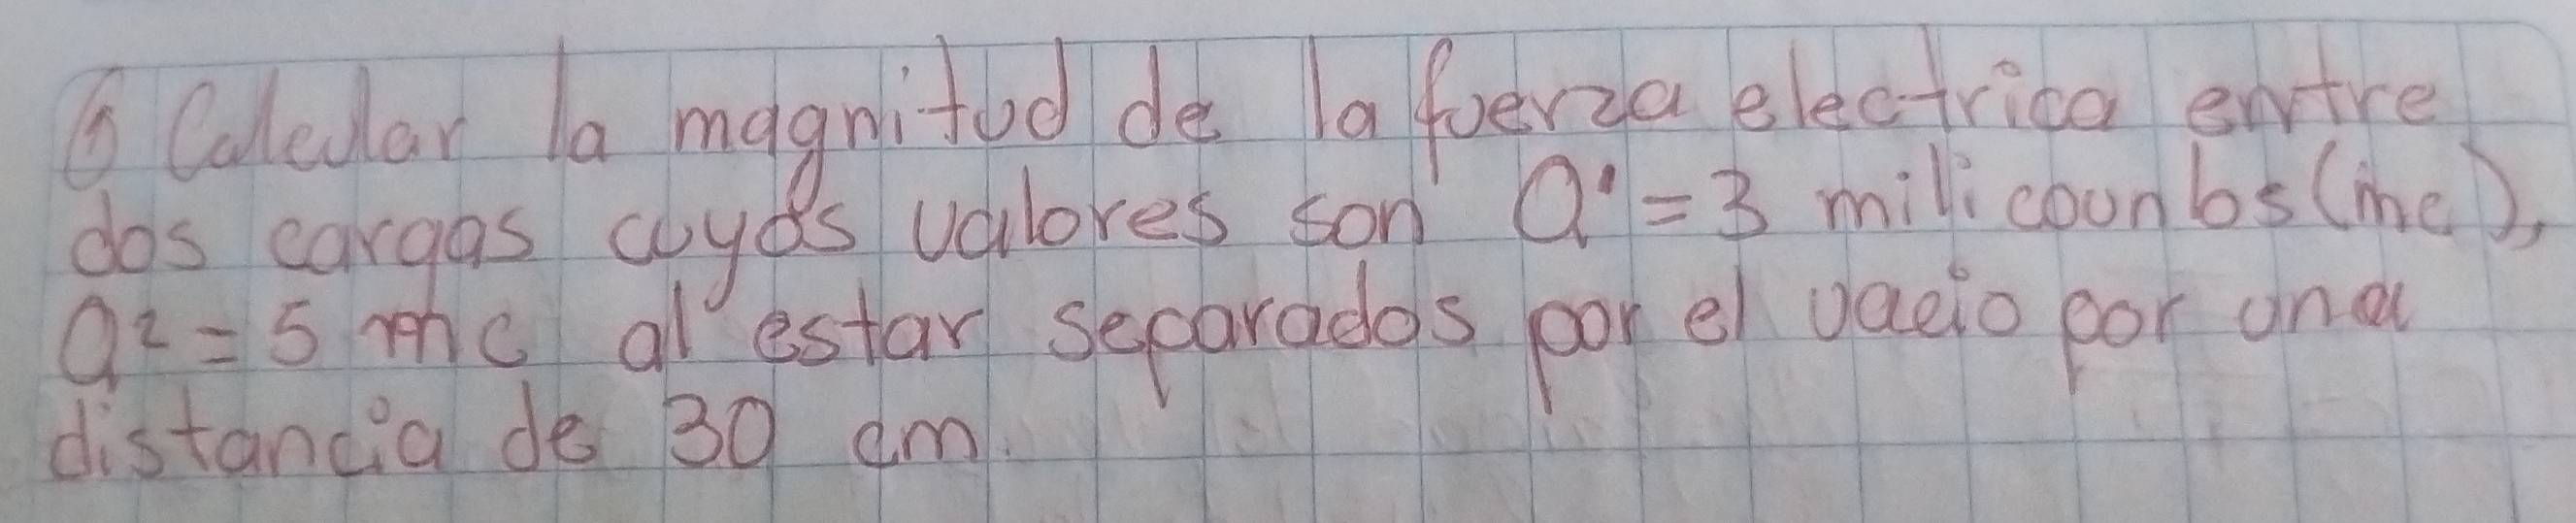 ① Calcular la magnitud de la fuerza electrica entre
dos cargas cuyos valores son Q¹ = 3 milicounbs (mc),
Q² = 5 mc al estar separados por el vacio por una
distancia de 30 cm.